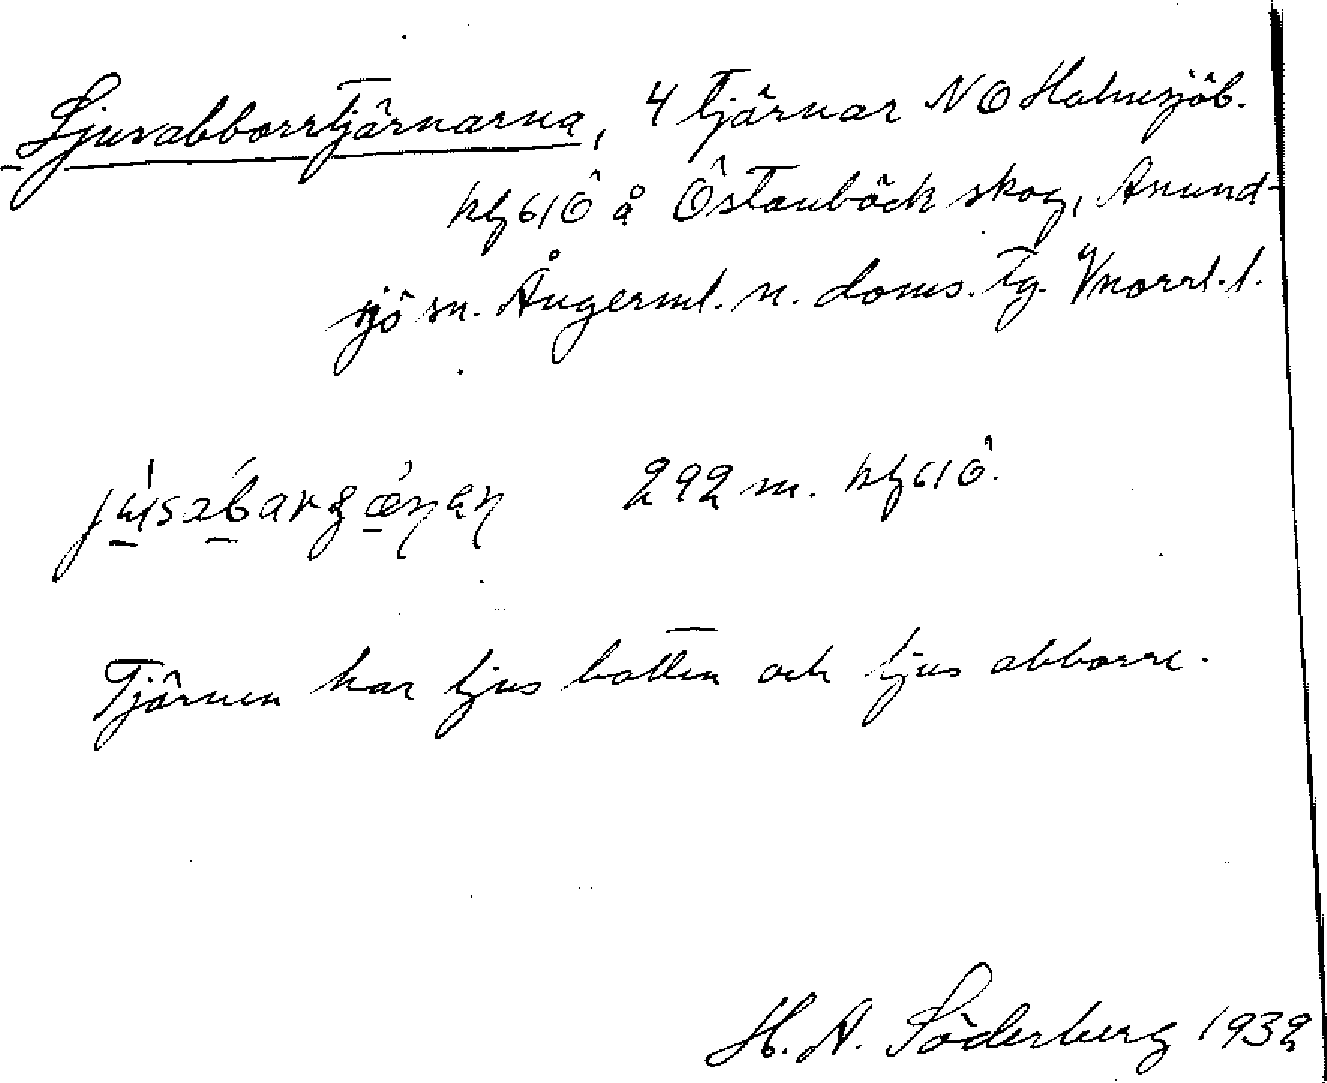 Ljusabborrtjärnarna, 4 tjärnar NO Holmsjöb.
kbl 61 Ö å Östanbäck skog, Anund-
sjö sn. Ångerml. n. doms. tg. Vnorrl. l.
292 m. kbl 61 Ö.
Tjärnen har ljus botten och ljus abborre.
H. A. Söderberg 1932